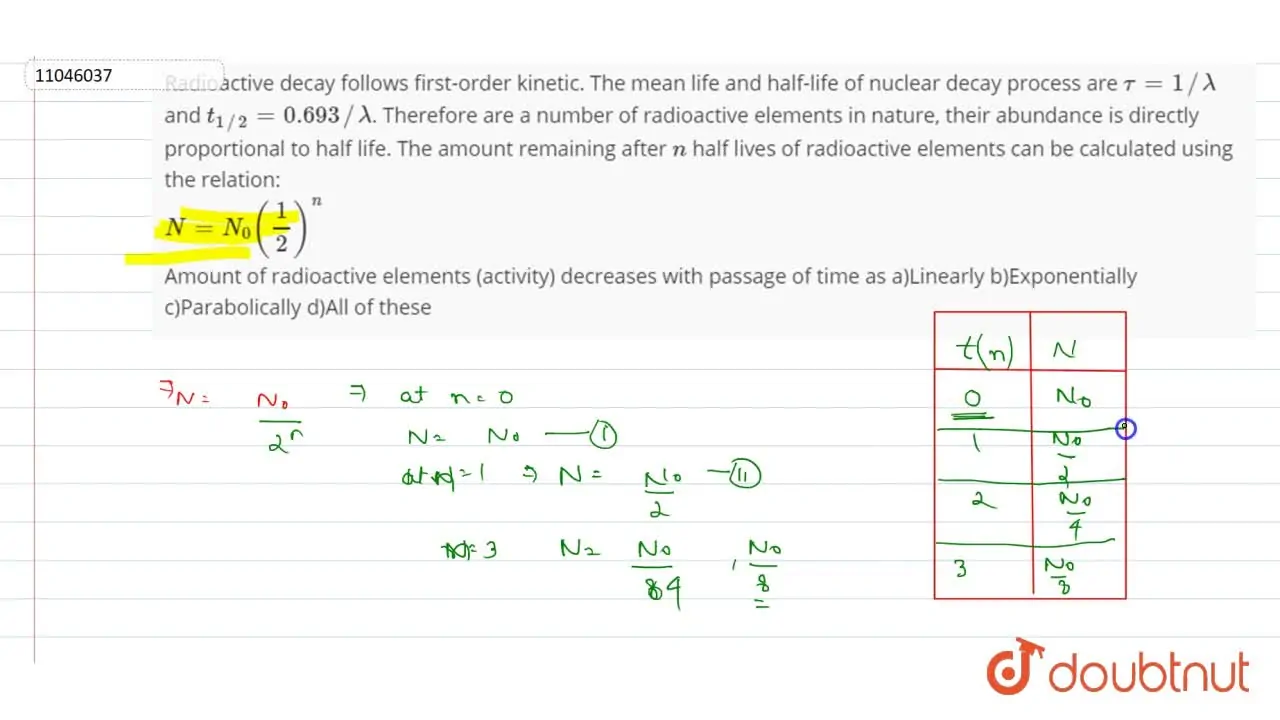 11046037
Radioactive decay follows first-order kinetic. The mean life and half-life of nuclear decay process are τ = 1/λ
and t_{1/2} = 0.693/λ. Therefore are a number of radioactive elements in nature, their abundance is directly
proportional to half life. The amount remaining after n half lives of radioactive elements can be calculated using
the relation:
N = N₀(1/2)ⁿ
Amount of radioactive elements (activity) decreases with passage of time as a)Linearly b)Exponentially
c)Parabolically d)All of these
t(n) N
0 N₀
1 N₀/2
2 N₀/4
3 N₀/8
⇒ N = N₀/2ⁿ ⇒ at n = 0
N = N₀ — (I)
at n = 1 ⇒ N = N₀/2 — (II)
= 3 N = N₀/4 , N₀/8
doubtnut